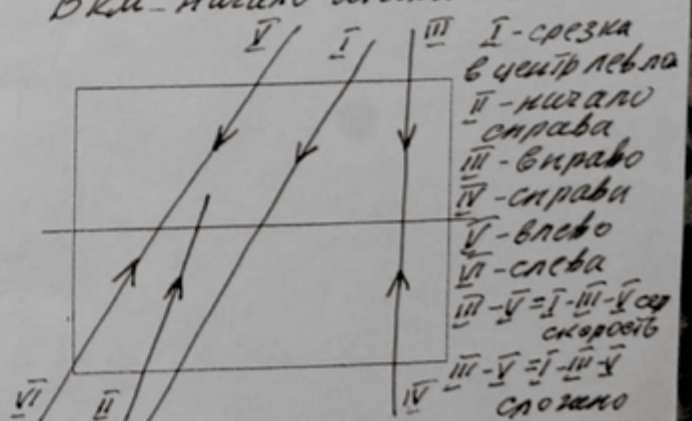 ВКМ-начало
V I III
I-срезка
в центр левла
II-начало
справа
III-вправо
IV-справи
V-влево
VI-слева
III-V=I-III-V сер
скорость
III-V=I-III-V
сложно
VI II IV